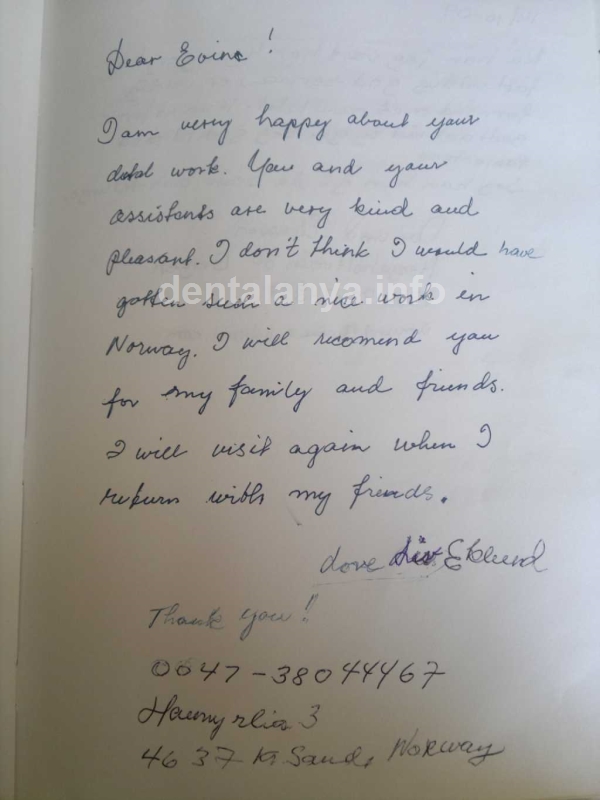 Dear Evina!
I am very happy about your
detal work. You and your
assistents are very kind and
pleasant. I don't think I would have
gotten such a nice work in
dentalanya.info
Norway. I will recomend you
for my family and friends.
I will visit again when I
return with my friends.
Love Liv Eklund
Thank you!!
0047-38044467
3
4637 Kr Sand, Norway